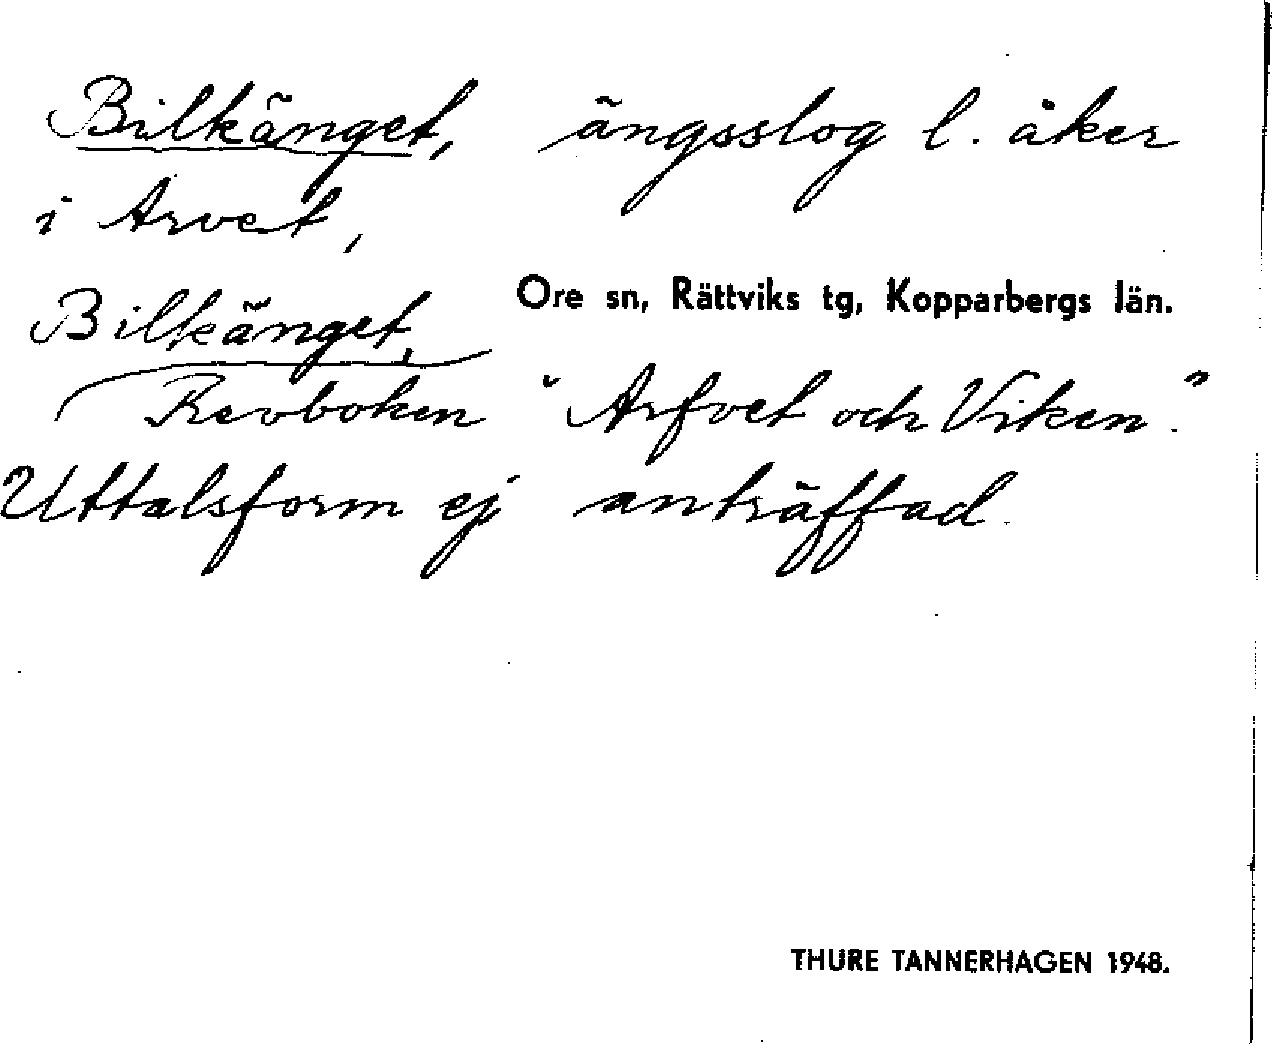 Bilkänget, ängsslog l. åker
i Arvet,
Ore sn, Rättviks tg, Kopparbergs län.
Bilkänget,
Revboken "Arfvet och Viken".
Uttalsform ej anträffad.
THURE TANNERHAGEN 1948.